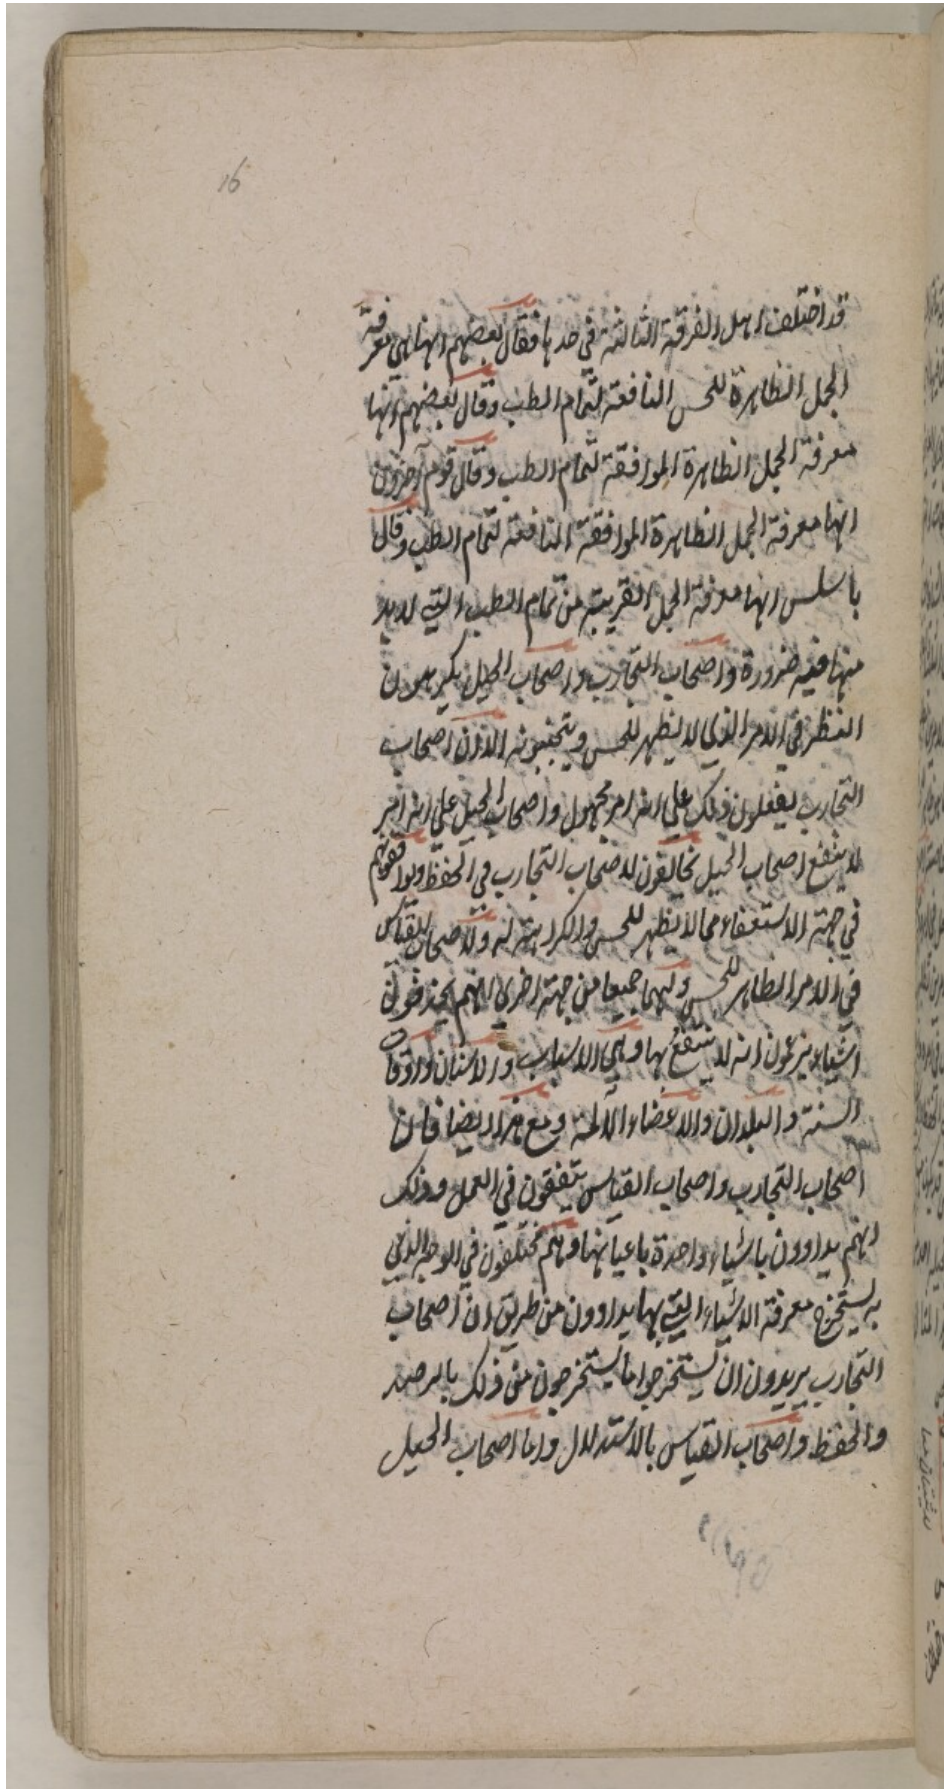 16
قد اختلف اهل الفرقة الثالثة في حدها فقال بعضهم انها هي معرفة
الجمل الظاهرة للحس النافعة لتمام الطب وقال بعضهم انها
معرفة الجمل الظاهرة الموافقة لتمام الطب وقال قوم آخرون
انها معرفة الجمل الظاهرة الموافقة النافعة لتمام الطب وقال
باسلس انها معرفة الجمل القريبة من تمام الطب التي لا بد
منها فيه ضرورة واصحاب التجارب واصحاب الحيل يكرهون
النظر في الامر الذي لا يظهر للحس ويتجنبونه الا ان اصحاب
التجارب يفعلون ذلك على انه امر مجهول واصحاب الحيل على انه امر
لا ينتفع اصحاب الحيل مخالفون لاصحاب التجارب في الحفظ ويوافقونهم
في جهة الاستعفاء مما لا يظهر للحس والكراهة له ولاصحاب القياس
في الامر الظاهر للحس ولهما جميعا من جهة اخرى انهم يحذفون
اشياء يزعمون انه لا ينتفع بها وهي الاسباب والاسنان واوقات
السنة والبلدان والاعضاء الآلمة ومع هذا ايضا فان
اصحاب التجارب واصحاب القياس يتفقون في العمل وذلك
انهم يداوون باشياء واحدة باعيانها وهم مختلفون في الوجه الذي
به يستخرج معرفة الاشياء التي بها يداوون من طريق ان اصحاب
التجارب يريدون ان يستخرجوا ما يستخرجون من ذلك بالرصد
والحفظ واصحاب القياس بالاستدلال واما اصحاب الحيل